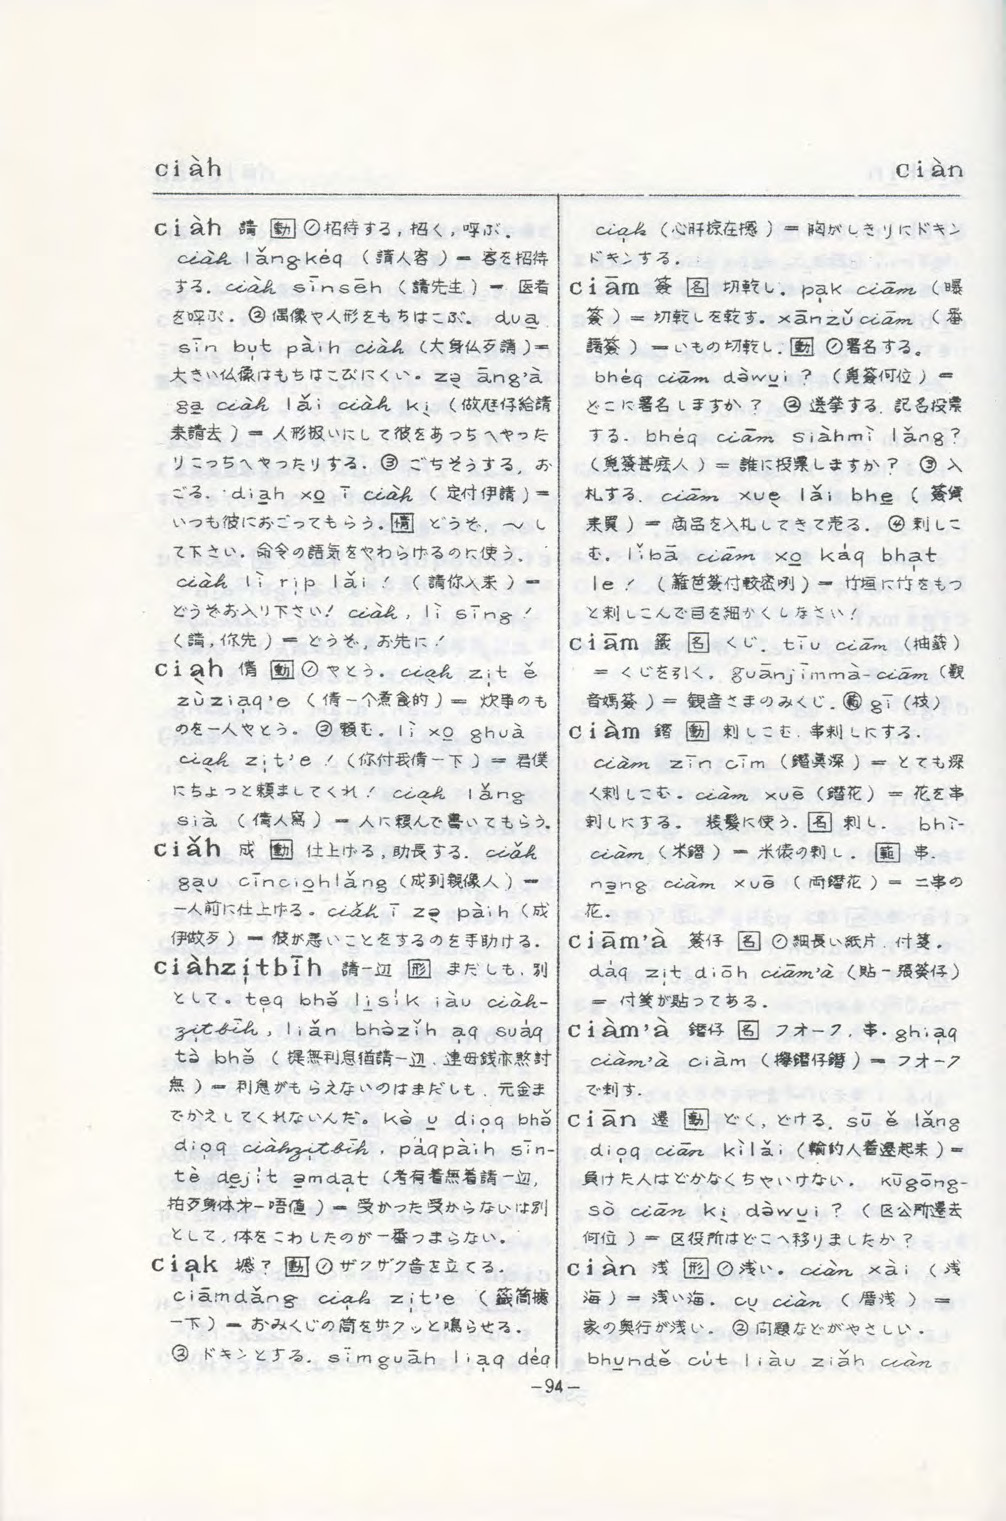 ciàh
ciàn
ciàh 請 [動] ①招待する，招く，呼ぶ。
ciàh lǎngkéq（請人客）＝ 客を招待
する．ciàh sīnsēh（請先生）＝ 医者
を呼ぶ．②偶像や人形をもちはこぶ。dua̱
sīn bụt pàih ciàh（大身仏歹請）＝
大きい仏像はもちはこびにくい。zə̣ āng'à
ga̱ ciàh lǎi ciàh kị（做尪仔給請
来請去）＝ 人形扱いにして彼をあっちへやった
りこっちへやったりする．③ごちそうする，お
ごる．dia̱h xo̱ ī ciàh（定付伊請）＝
いつも彼におごってもらう．[情] どうぞ，～し
て下さい．命令の語気をやわらげるのに使う．
ciàh lì rịp lǎi！（請你入来）＝
どうぞお入り下さい！ciàh，lì sīng！
（請，你先）＝ どうぞ，お先に！
ciạh 倩 [動] ①やとう．ciạh zịt ě
zùziạq'e（倩一个煮食的）＝ 炊事のも
のを一人やとう。②頼む．lì xo̱ ghuà
ciạh zịt'e！（你付我倩一下）＝ 君僕
にちょっと頼ましてくれ！ciạh lǎng
sià（倩人寫）＝ 人に頼んで書いてもらう．
ciǎh 成 [動] 仕上げる，助長する．ciǎh
gạu cīncio̱hlǎng（成到親像人）＝
一人前に仕上げる。ciǎh ī zə̣ pàih（成
伊做歹）＝ 彼が悪いことをするのを手助ける．
ciàhzịtbīh 請一辺 [形] まだしも，別
として。tẹq bhə̌ lịsík iàu ciàh-
zịtbīh，liǎn bhə̀zìh aq suáq
tə̀ bhə̌（提無利息猶請一辺．連母銭亦煞討
無）＝ 利息がもらえないのはまだしも．元金ま
でかえしてくれないんだ。Kə̀ u̱ diọq bhə̌
diọq ciàhzịtbīh，páqpàih sīn-
tè de̱jít əmdạt（考有着無着請一辺，
拍歹身体第一唔値）＝ 受かった受からないは別
として，体をこわしたのが一番つまらない。
ciạk 搣？ [動] ①ザクザク音を立てる．
ciāmdǎng ciạk zịt'e（籤筒搣
一下）＝ おみくじの筒をザクッと鳴らせる．
③ドキンとする．sīmguāh liạq déq
ciạk（心肝掠在搣）＝ 胸がしきりにドキン
ドキンする．
ciām 簽 [名] 切乾し．pạk ciām（曝
簽）＝ 切乾しを乾す．xānzǔciām（番
藷簽）＝ いもの切乾し．[動] ①署名する。
bhéq ciām də̀wụi？（覓簽何位）＝
どこに署名しますか？ ②選挙する．記名投票
する．bhéq ciām siàhmì lǎng？
（覓簽甚麽人）＝ 誰に投票しますか？ ③入
札する．ciām xuẹ lǎi bhe̱（簽貨
来買）＝ 商品を入札してきて売る．④刺しこ
む．lǐbā ciām xo̱ káq bhạt
le！（籬笆簽付較密咧）＝ 竹垣に竹をもっ
と刺しこんで目を細かくしなさい！
ciām 籤 [名] くじ．tīu ciām（抽籤）
＝ くじを引く．guānjīmmà-ciām（観
音媽簽）＝ 観音さまのみくじ．㊒ gī（枝）
ciàm 鐕 [動] 刺しこむ．串刺しにする．
ciàm zīn cīm（鐕真深）＝ とても深
く刺しこむ．ciàm xuē（鐕花）＝ 花を串
刺しにする。装髪に使う．[名] 刺し．bhì-
ciàm（米鐕）＝ 米俵の刺し．[範] 串．
nə̱ng ciàm xuē（両鐕花）＝ 二串の
花．
ciām'à 簽仔 [名] ①細長い紙片．付箋．
dáq zịt diōh ciām'à（貼一張簽仔）
＝ 付箋が貼ってある．
ciàm'à 鐕仔 [名] フォーク，串．ghiạq
ciàm'à ciàm（攑鐕仔鐕）＝ フォーク
で刺す．
ciān 遷 [動] どく，どける．sū ě lǎng
diọq ciān kìlǎi（輸的人着遷起来）＝
負けた人はどかなくちゃいけない．Kūgōng-
sò ciān kị də̀wụi？（区公所遷去
何位）＝ 区役所はどこへ移りましたか？
ciàn 浅 [形] ①浅い．ciàn xài（浅
海）＝ 浅い海．cụ ciàn（厝浅）＝
家の奥行が浅い．②問題などがやさしい．
bhu̱ndě cút liàu ziǎh ciàn
－94－